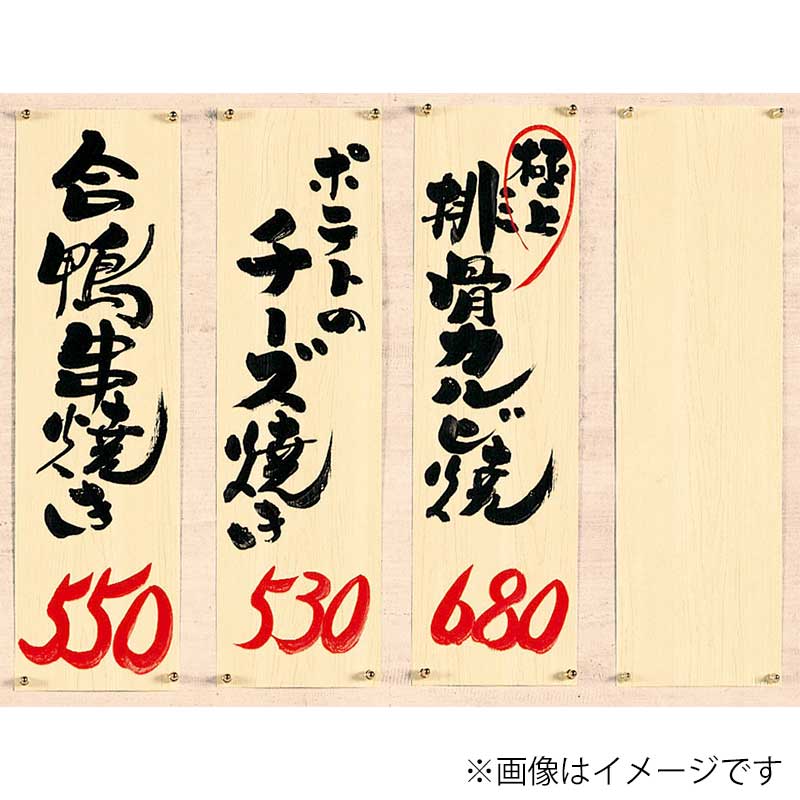 極上
排骨カルビ焼
680
ポテトの
チーズ焼き
530
合鴨串焼き
550
※画像はイメージです